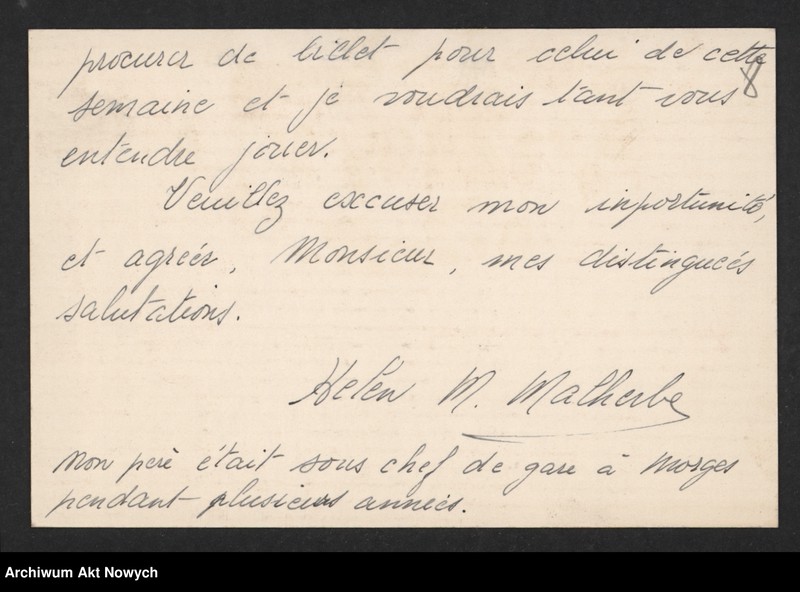 procurer de billet pour celui de cette
8
semaine et je voudrais tant vous
entendre jouer.
Veuillez excuser mon inportunité,
et agréer, Monsieur, mes distingueés
salutations.
Helen M. Malherbe
Mon perè était sous chef de gare à Morges
pendant plusieurs anneés.
Archiwum Akt Nowych